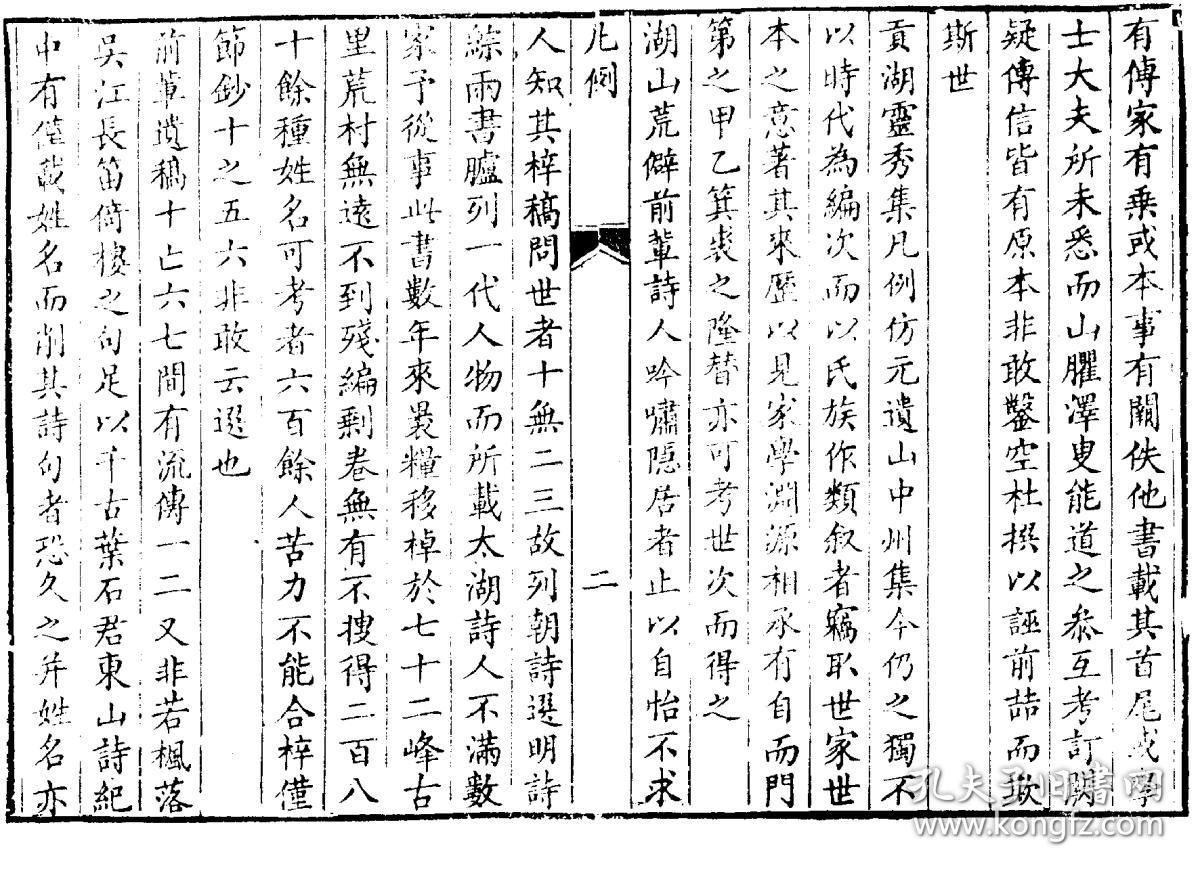 有傳家有乗或本事有關佚他書載其首尾或學
士大夫所未悉而山臞澤叟能道之叅互考訂闕
疑傳信皆有原本非敢鑿空杜撰以誣前喆而欺
斯世
貢湖靈秀集凡例仿元遺山中州集今仍之獨不
以時代為編次而以氏族作類敘者竊取世家世
本之意著其來歷以見家學淵源相承有自而門
第之甲乙箕裘之隆替亦可考世次而得之
湖山荒僻前輩詩人吟嘯隱居者止以自怡不求
凡例
二
人知其梓稿問世者十無二三故列朝詩選明詩
綜兩書臚列一代人物而所載太湖詩人不滿數
家予從事此書數年來裹糧移棹於七十二峰古
里荒村無遠不到殘編剩卷無有不捜得二百八
十餘種姓名可考者六百餘人苦力不能合梓僅
節鈔十之五六非敢云選也
前輩遺稿十亡六七間有流傳一二又非若楓落
吳江長笛倚樓之句足以千古葉石君東山詩紀
中有僅載姓名而削其詩句者恐久之并姓名亦
孔夫子旧书网
www.kongfz.com